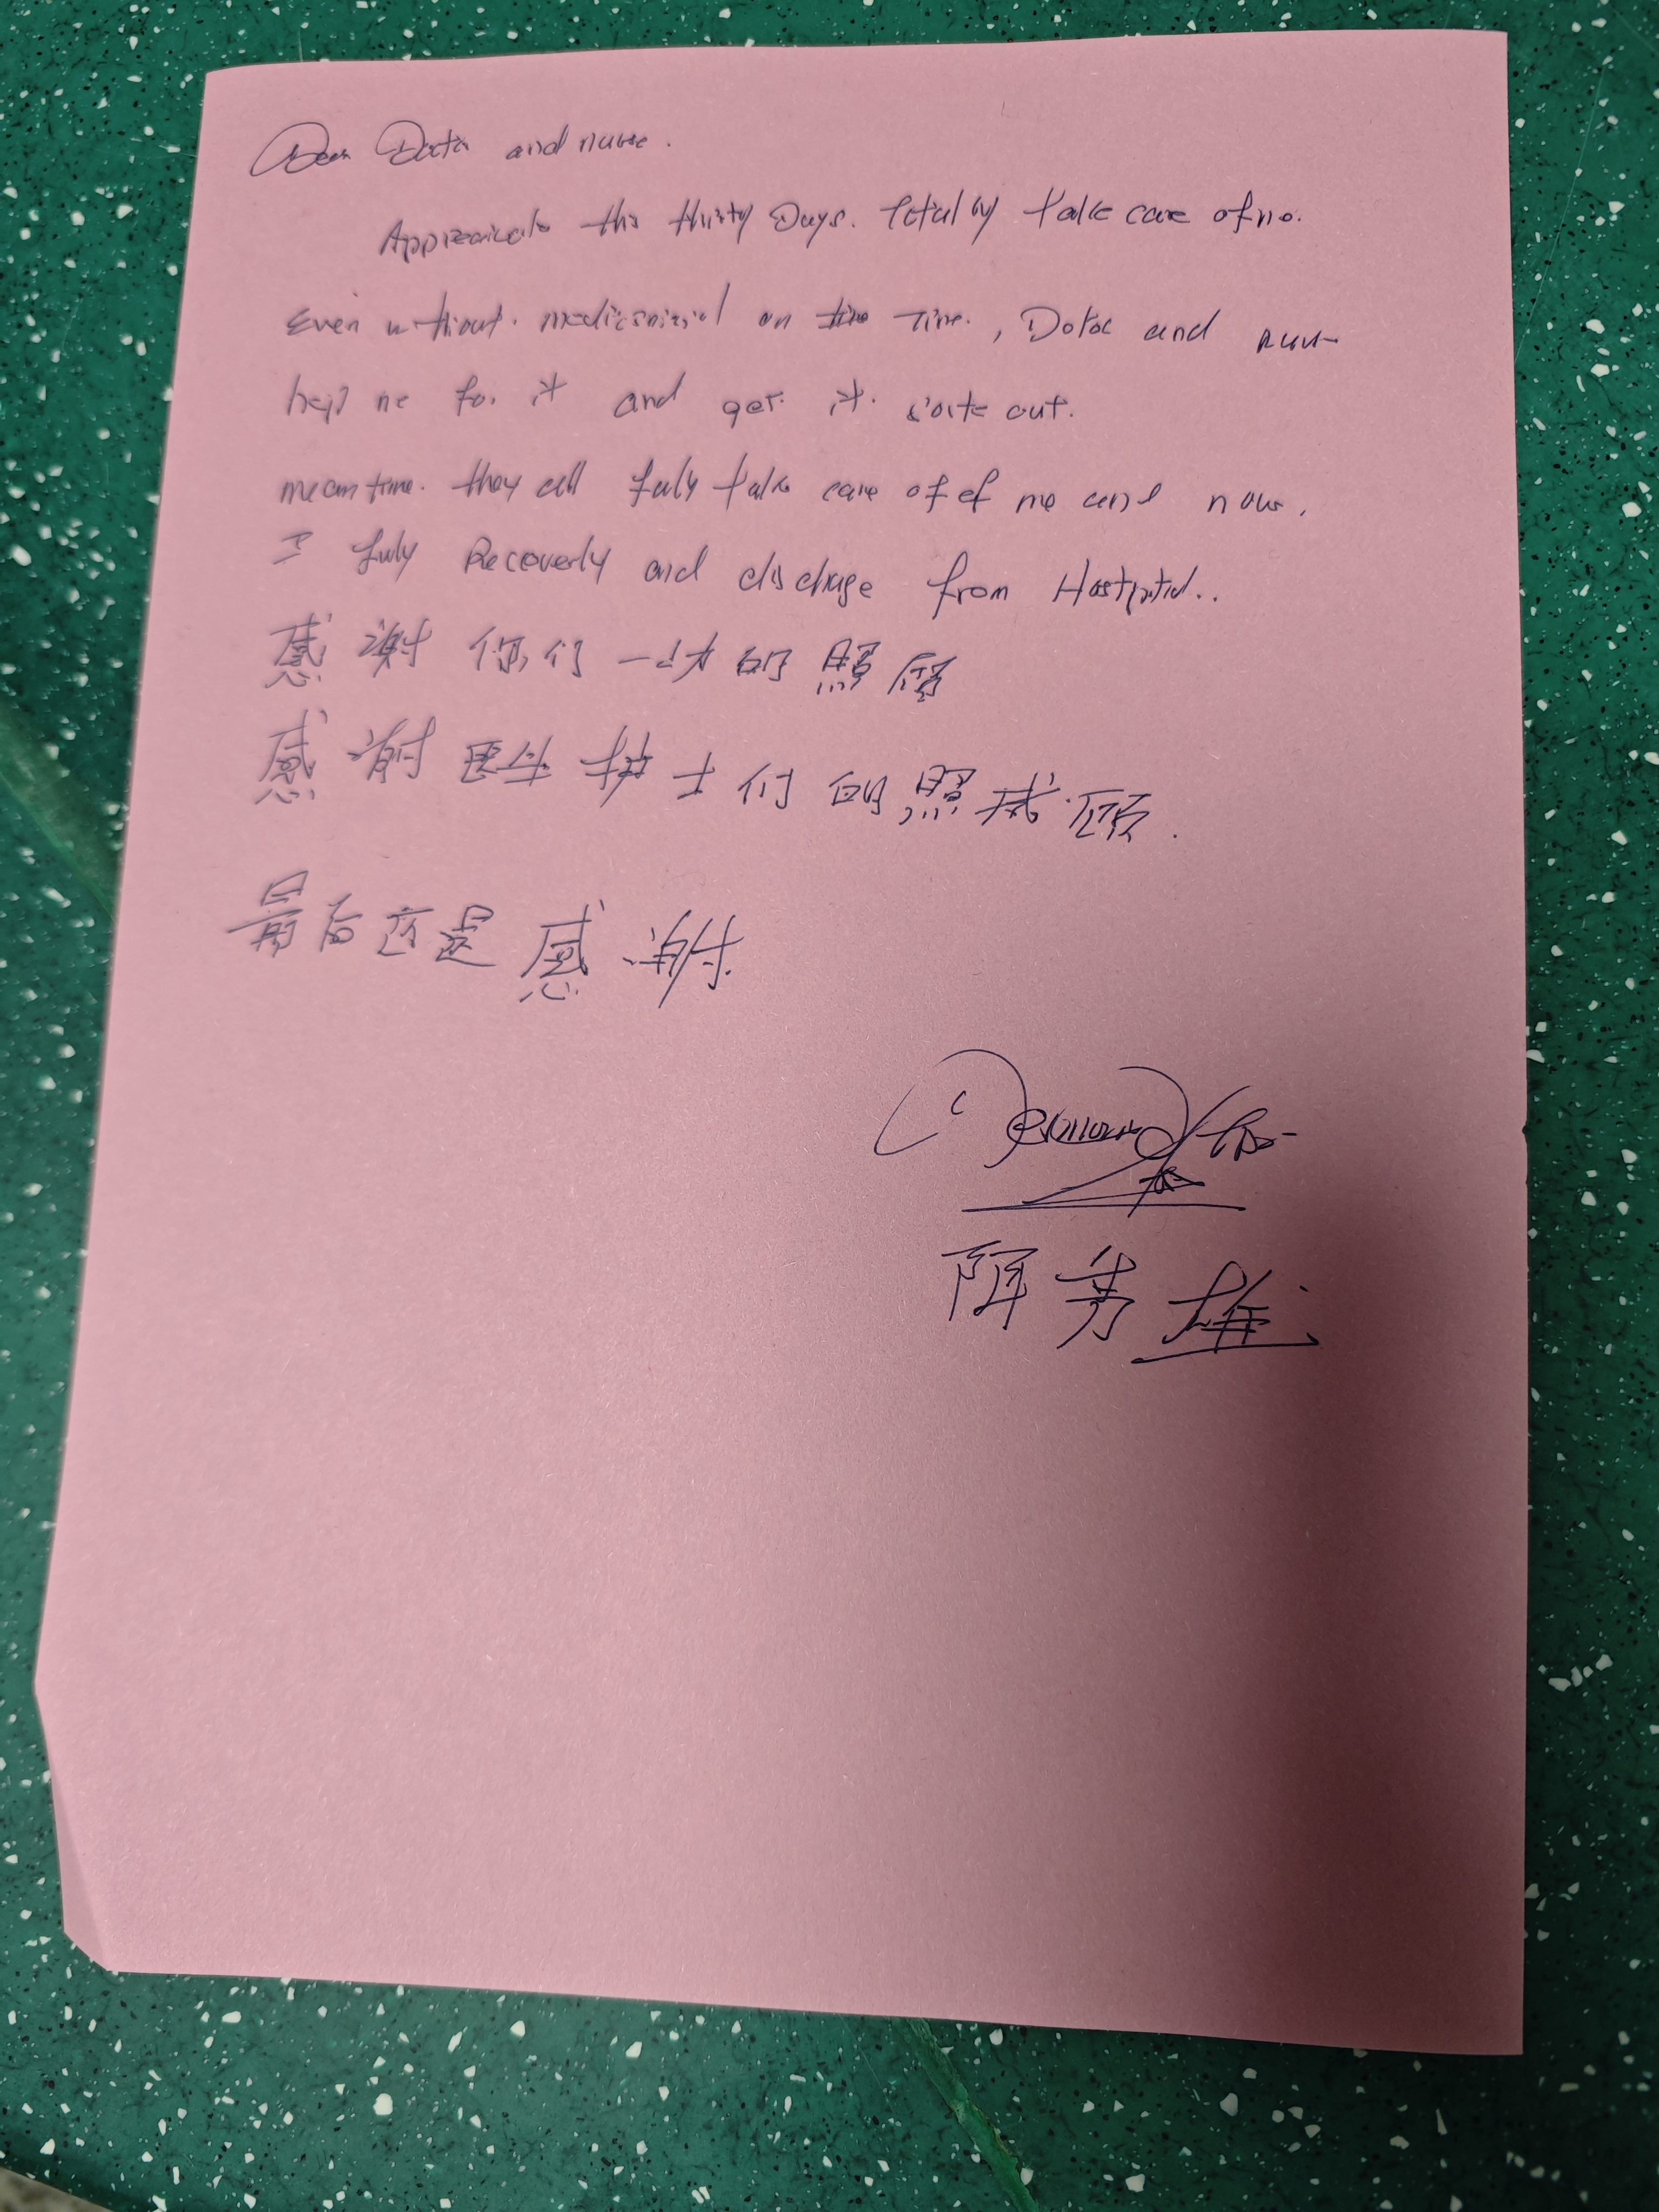 Dear Doctor and nurse.
Appreciate this thirty Days. totally take care of me.
Even without. on the Time., Doctor and nurse
help me for it and get it. work out.
meantime. they all fully take care of of me and now.
I fully Recoverly and discharge from Hostpital..
感谢你们一切的照顾
感谢医生护士们的照顾.
最后还是感谢.
雄